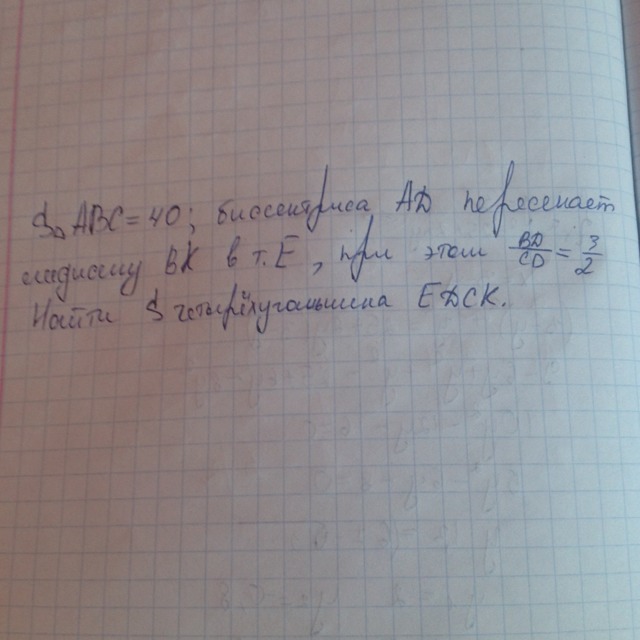 S△ ABC = 40; биссектриса AD пересекает
медиану BK в т. E, при этом BD/CD = 3/2
Найти S четырёхугольника EDCK.